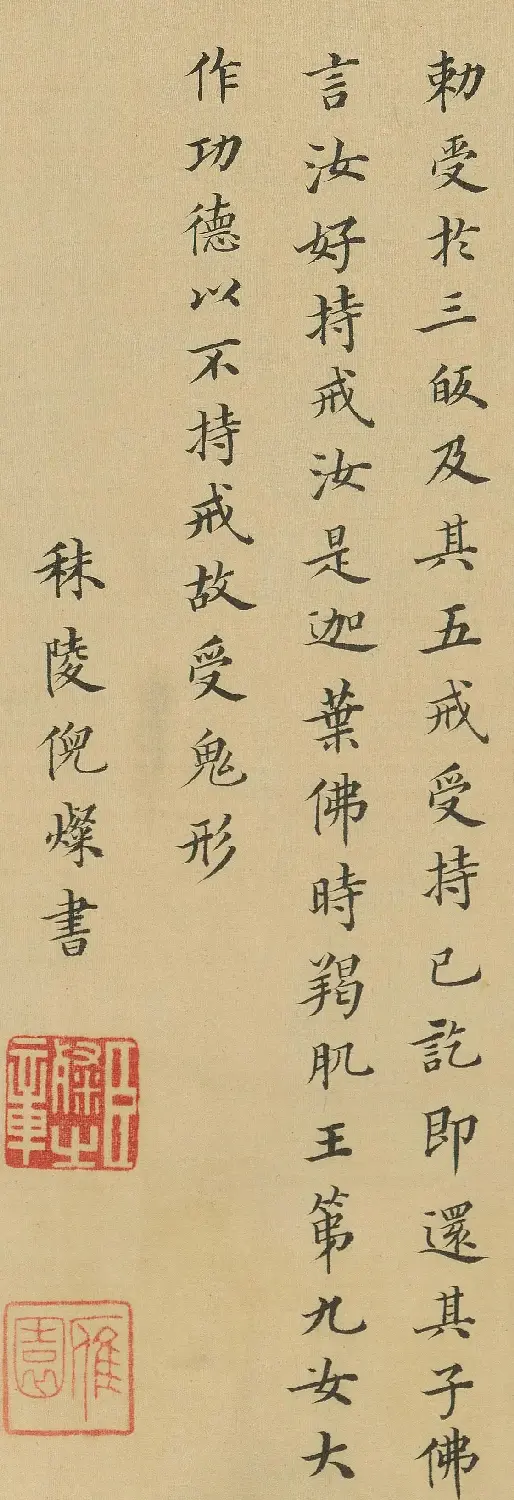 勅受於三皈及其五戒受持已訖即還其子佛
言汝好持戒汝是迦葉佛時羯肌王第九女大
作功德以不持戒故受鬼形
秣陵倪燦書
雁園